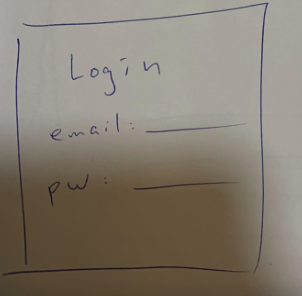 Login
email: ________
pw: ________